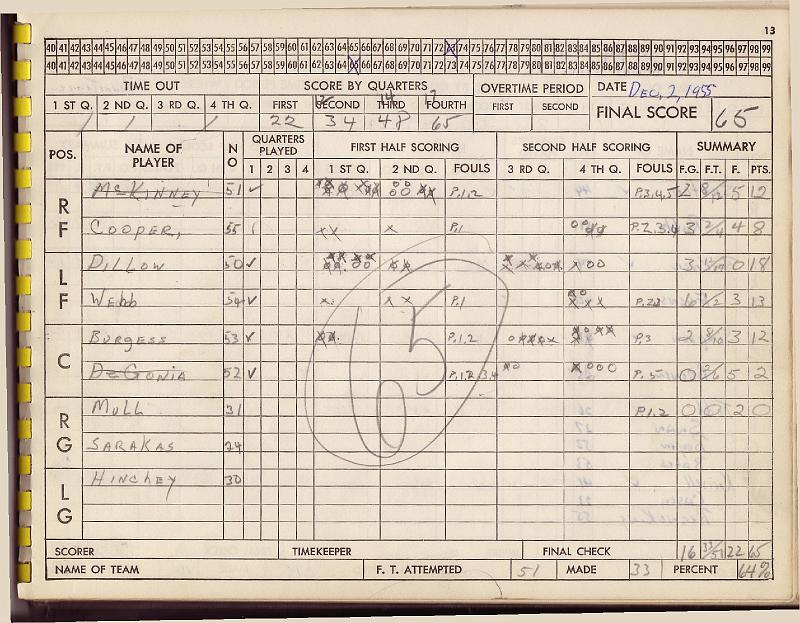 13
40 41 42 43 44 45 46 47 48 49 50 51 52 53 54 55 56 57 58 59 60 61 62 63 64 65 66 67 68 69 70 71 72 73 74 75 76 77 78 79 80 81 82 83 84 85 86 87 88 89 90 91 92 93 94 95 96 97 98 99
40 41 42 43 44 45 46 47 48 49 50 51 52 53 54 55 56 57 58 59 60 61 62 63 64 65 66 67 68 69 70 71 72 73 74 75 76 77 78 79 80 81 82 83 84 85 86 87 88 89 90 91 92 93 94 95 96 97 98 99
TIME OUT SCORE BY QUARTERS OVERTIME PERIOD DATE Dec. 2, 1955
1 ST Q. 2 ND Q. 3 RD Q. 4 TH Q. FIRST SECOND THIRD FOURTH FIRST SECOND FINAL SCORE 65
22 34 48 65
POS. NAME OF PLAYER NO QUARTERS PLAYED FIRST HALF SCORING SECOND HALF SCORING SUMMARY
1 2 3 4 1 ST Q. 2 ND Q. FOULS 3 RD Q. 4 TH Q. FOULS F.G. F.T. F. PTS.
RF McKinney 51 P,1,2 P,3,4,5 2 8/12 5 12
Cooper, 55 P,1 3 2/4 4 8
LF Dillow 50 3 0 18
Webb 54 P,1 3 13
C Burgess 53 P,1,2 P,3 2 8/10 3 12
DeGonia 52 P,1,2,3,4 P,5 0 2/6 5 2
RG Mull 31 P,1,2 0 0 2 0
Sarakas 24
LG Hinchey 30
65
SCORER TIMEKEEPER FINAL CHECK 16 33/51 22 65
NAME OF TEAM F. T. ATTEMPTED 51 MADE 33 PERCENT 64%